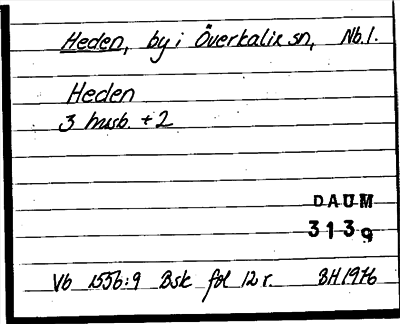 Heden, by i Överkalix sn, Nb.l.
Heden
3 husb. + 2
DAUM
3139
Vb 1556:9 Bsk fol 12 r. BH 1976